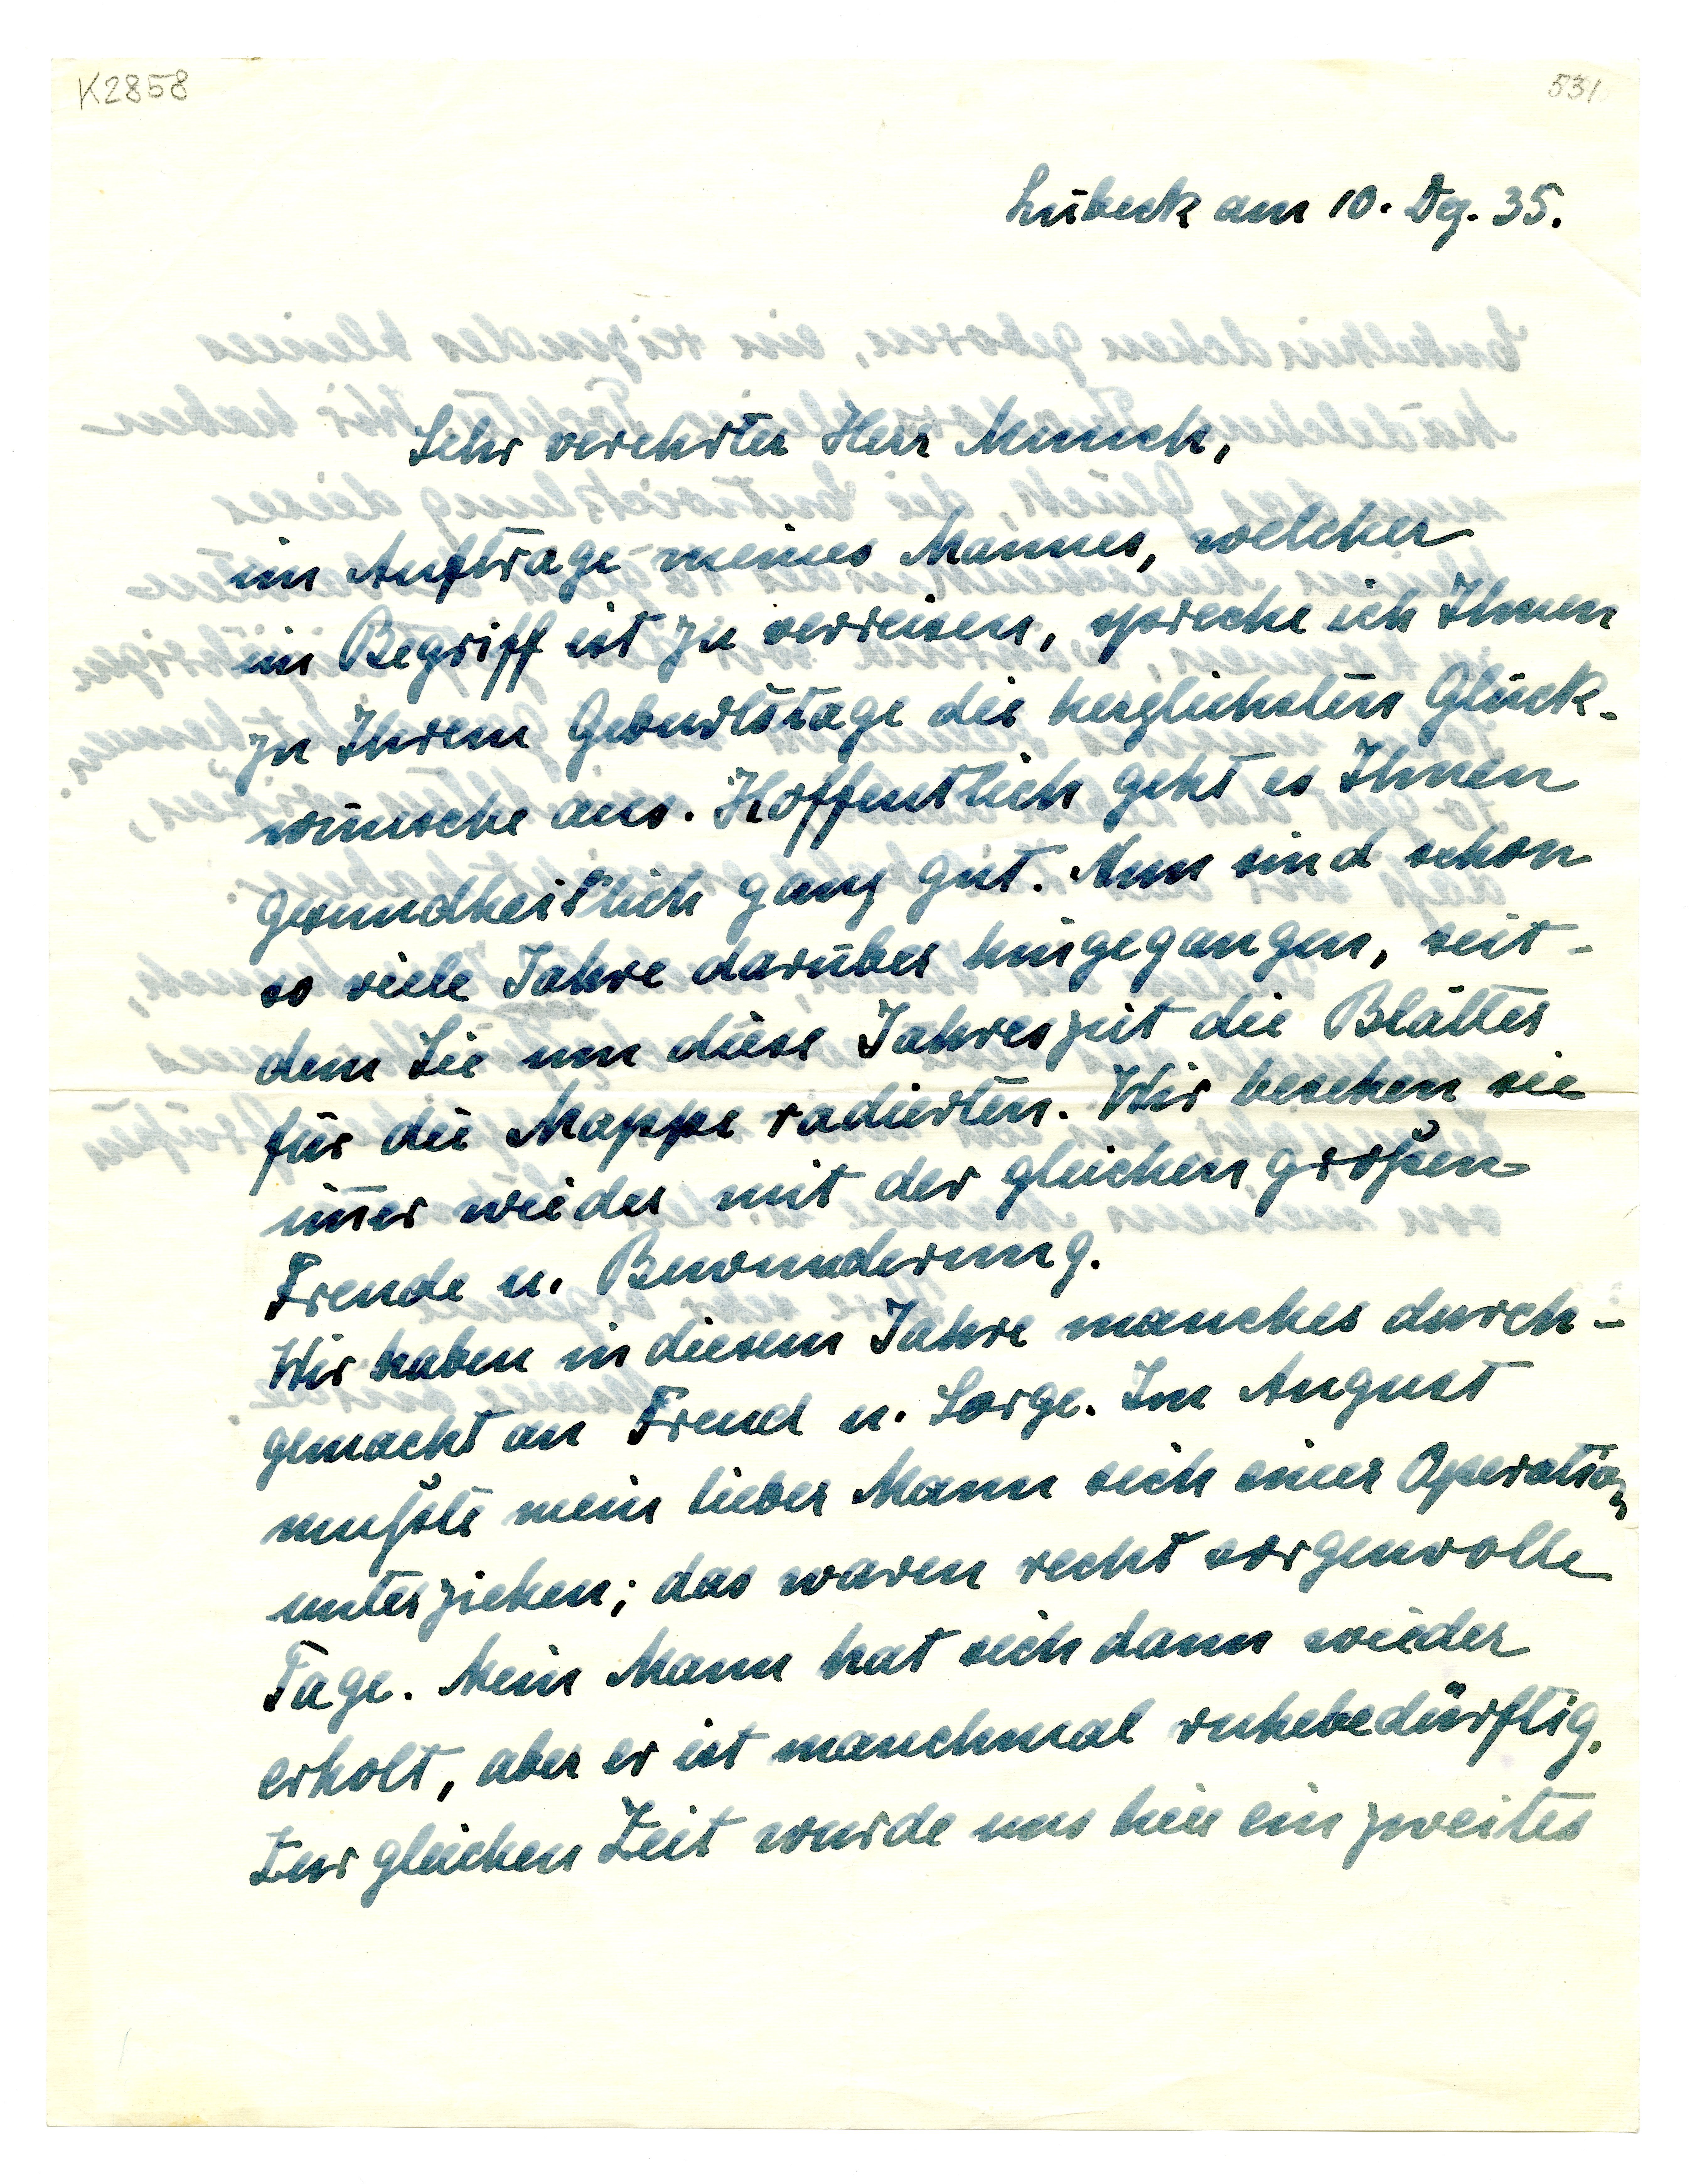 K2858
531
Lübeck am 10. Dez. 35.
Sehr verehrter Herr Munch,
im Auftrage meines Mannes, welcher
im Begriff ist zu verreisen, spreche ich Ihnen
zu Ihrem Geburtstage die herzlichsten Glück-
wünsche aus. Hoffentlich geht es Ihnen
gesundheitlich ganz gut. Nun sind schon
so viele Jahre darüber hingegangen, seit-
dem Sie um diese Jahreszeit die Blätter
für die Mappe radierten. Wir besehen sie
im̄er wieder mit der gleichen großen
Freude u. Bewunderung.
Wir haben in diesem Jahre manches durch-
gemacht an Freud u. Sorge. Im August
mußte mein lieber Mann sich einer Operation
unterziehen; das waren recht sorgenvolle
Tage. Mein Mann hat sich dann wieder
erholt, aber er ist manchmal ruhebedürftig.
Zur gleichen Zeit wurde uns hier ein zweites